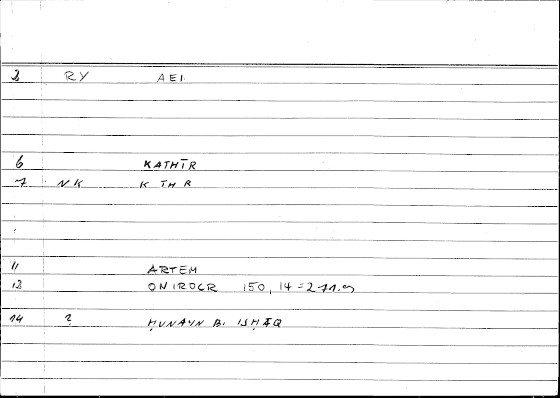 2 RY AEI
6 KATHĪR
7 NK KTHR
11 ARTEM
13 ONIROCR 150, 14 =
14 ? ḤUNAYN B. ISḤĀQ